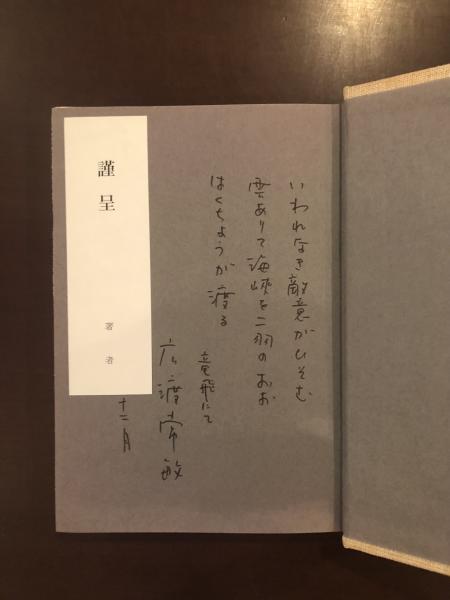 いわれなき敵意がひそむ
雲ありて海峡を二羽のおお
はくちょうが渡る
竜飛にて
広渡常敏
十二月
謹呈
著者